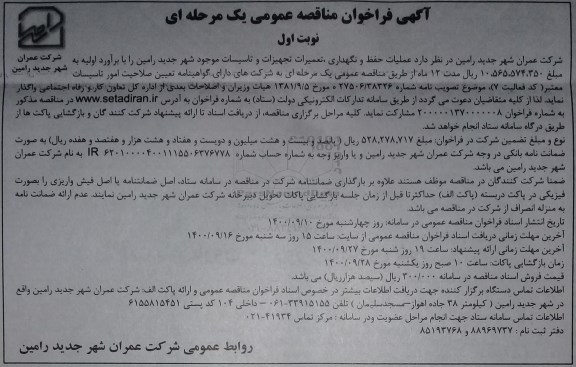 آگهی فراخوان مناقصه عمومی یک مرحله ای
نوبت اول
شرکت عمران
شهر جدید رامین
شرکت عمران شهر جدید رامین در نظر دارد عملیات حفظ و نگهداری ،تعمیرات تجهیزات و تاسیسات موجود شهر جدید رامین را با برآورد اولیه به
مبلغ ۱۰،۵۶۵،۵۷۴،۳۵۰ ریال مدت ۱۲ ماه از طریق مناقصه عمومی یک مرحله ای به شرکت های دارای گواهینامه تعیین صلاحیت امور تاسیسات
معتبر( کد فعالیت ۷)، موضوع تصویب نامه شماره ۲۷۵۰۶/۳۸۳۲۶ مورخ ۱۳۸۱/۹/۵ هیات وزیران و اصلاحات بعدی از اداره کل تعاون کار و رفاه اجتماعی واگذار
نماید. لذا از کلیه متقاضیان دعوت می گردد از طریق سامانه تدارکات الکترونیکی دولت (ستاد) به شماره فراخوان به آدرس www.setadiran.ir در مناقصه مذکور
به شماره فراخوان ۲۰۰۰۰۰۱۳۷۰۰۰۰۰۸ مشارکت نماید. کلیه مراحل برگزاری مناقصه، از دریافت اسناد تا ارائه پیشنهاد شرکت کنند گان و بازگشایی پاکت ها از
طریق درگاه سامانه ستاد انجام خواهد شد.
نوع و مبلغ تضمین شرکت در فراخوان: مبلغ ۵۲۸،۲۷۸،۷۱۷ ریال (پانصد و بیست و هشت میلیون و دویست و هفتاد و هشت هزار و هفتصد و هفده ریال) به صورت
ضمانت نامه بانکی در وجه شرکت عمران شهر جدید رامین و یا واریز وجه به شماره حساب شماره IR ۶۲۰۱۰۰۰۰۴۰۰۱۱۱۵۵۰۶۳۷۶۷۷۸ به نام شرکت عمران
شهر جدید رامین می باشد.
ضمنا شرکت کنندگان در مناقصه موظف هستند علاوه بر بارگذاری ضمانتنامه شرکت در مناقصه در سامانه ستاد، اصل ضمانتنامه یا اصل فیش واریزی را بصورت
فیزیکی در پاکت دربسته (پاکت الف) حداکثر تا قبل از زمان جلسه بازگشایی پاکات تحویل دبیرخانه شرکت عمران شهر جدید رامین نمایند. عدم ارائه ضمانت نامه
به منزله انصراف از شرکت در مناقصه می باشد.
تاریخ انتشار اسناد فراخوان مناقصه عمومی در سامانه: روز چهارشنبه مورخ ۱۴۰۰/۰۹/۱۰
آخرین مهلت زمانی دریافت اسناد فراخوان مناقصه عمومی از سایت: ساعت ۱۵ روز سه شنبه مورخ ۱۴۰۰/۰۹/۱۶
آخرین مهلت زمانی ارائه پیشنهاد: ساعت ۱۹ روز شنبه مورخ ۱۴۰۰/۰۹/۲۷
زمان بازگشایی پاکات: ساعت ۱۰ صبح روز یکشنبه مورخ ۱۴۰۰/۰۹/۲۸
قیمت فروش اسناد مناقصه در سامانه ۳۰۰/۰۰۰ ریال (سیصد هزارریال) می باشد.
اطلاعات تماس دستگاه برگزار کننده جهت دریافت اطلاعات بیشتر در خصوص اسناد فراخوان مناقصه عمومی و ارائه پاکت الف: شرکت عمران شهر جدید رامین واقع
در شهر جدید رامین ( کیلومتر ۳۸ جاده اهواز–مسجدسلیمان ) تلفن ۳۳۹۱۵۱۵۵-۰۶۱ – داخلی ۱۰۴ کد پستی ۶۱۵۵۸۱۵۴۵۱
اطلاعات تماس سامانه ستاد جهت انجام مراحل عضویت ودر سامانه : مرکز تماس ۴۱۹۳۴-۰۲۱
دفتر ثبت نام : ۸۸۹۶۹۷۳۷ و ۸۵۱۹۳۷۶۸
روابط عمومی شرکت عمران شهر جدید رامین